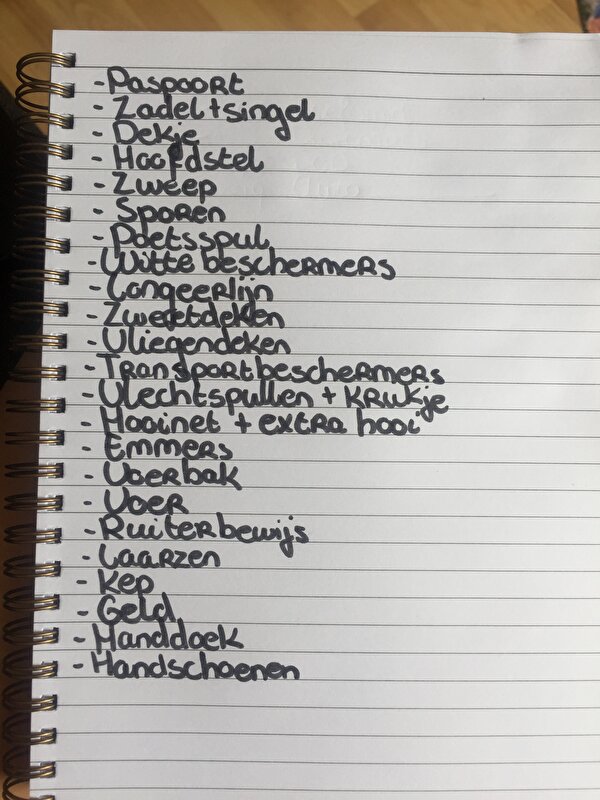 - Paspoort
- Zadel + singel
- Dekje
- Hoofdstel
- Zweep
- Sporen
- Poetsspul
- Witte beschermers
- Longeerlijn
- Zweetdeken
- Vliegendeken
- Transportbeschermers
- Vlechtspullen + krukje
- Hooinet + extra hooi
- Emmers
- Voerbak
- Voer
- Ruiterbewijs
- Laarzen
- Kep
- Geld
- Handdoek
- Handschoenen